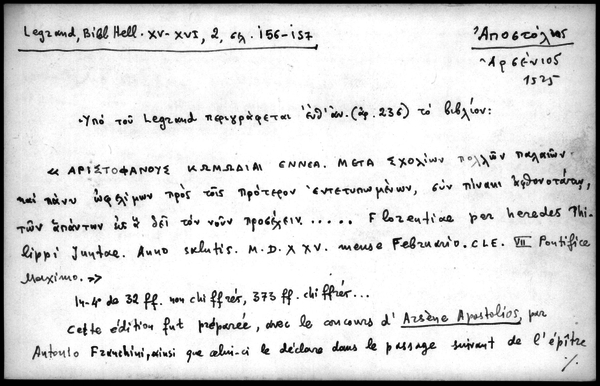 Legrand, Bibl Hell. XV-XVI, 2, σλ. 156-157
Ἀποστόλης
Ἀρσένιος
1525
Ὑπὸ τοῦ Legrand περιγράφεται ἐνθ' ἀν. (ἀρ. 236) τὸ βιβλίον:
« ΑΡΙΣΤΟΦΑΝΟΥΣ ΚΩΜΩΔΙΑΙ ΕΝΝΕΑ. ΜΕΤΑ ΣΧΟΛΙΩΝ πολλῶν παλαιῶν
καὶ πάνυ ὠφελίμων πρὸς τοῖς πρότερον ἐντετυπωμένων, σὺν πίνακι ἀφθονοτάτῳ,
τῶν ἁπάντων ἐς ἃ δεῖ τὸν νοῦν προσέχειν. .... Florentiae per heredes Phi-
lippi Juntae. Anno salutis. M.D.XXV. mense Februario. CLE. VII Pontifice
Maximo. »
In-4º de 32 ff. non chiffrés, 373 ff. chiffrés...
Cette édition fut préparée, avec le concours d'Arsène Apostolios, par
Antonio Franchini, ainsi que celui-ci le déclare dans le passage suivant de l'épître
./.